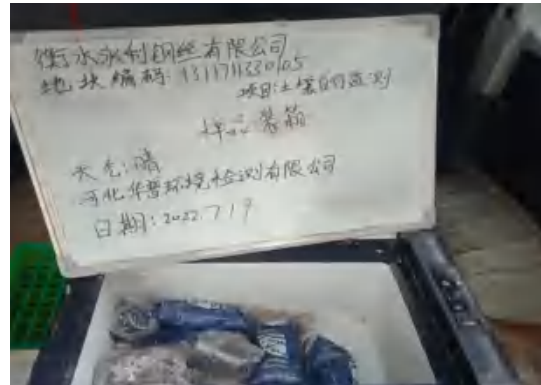 衡水永利钢丝有限公司
地块编码:1311711330105
项目:土壤自行监测
样品装箱
天气:晴
河北华普环境检测有限公司
日期:2022.7.19